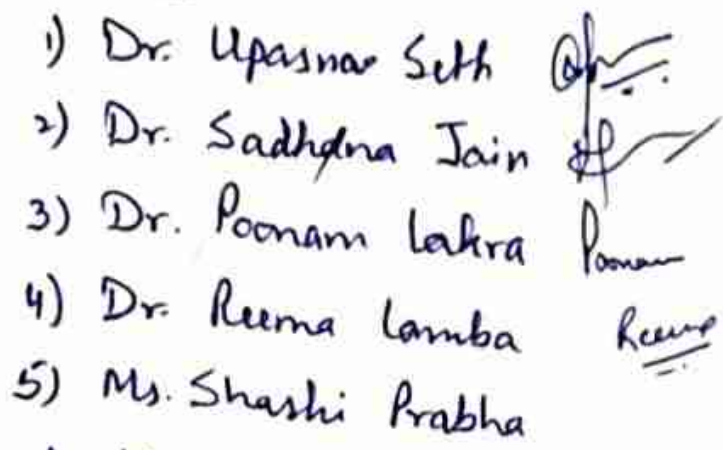 1) Dr. Upasna Seth
2) Dr. Sadhdna Jain
3) Dr. Poonam Lakra Poonam
4) Dr. Reema Lamba Reema
5) Ms. Shashi Prabha